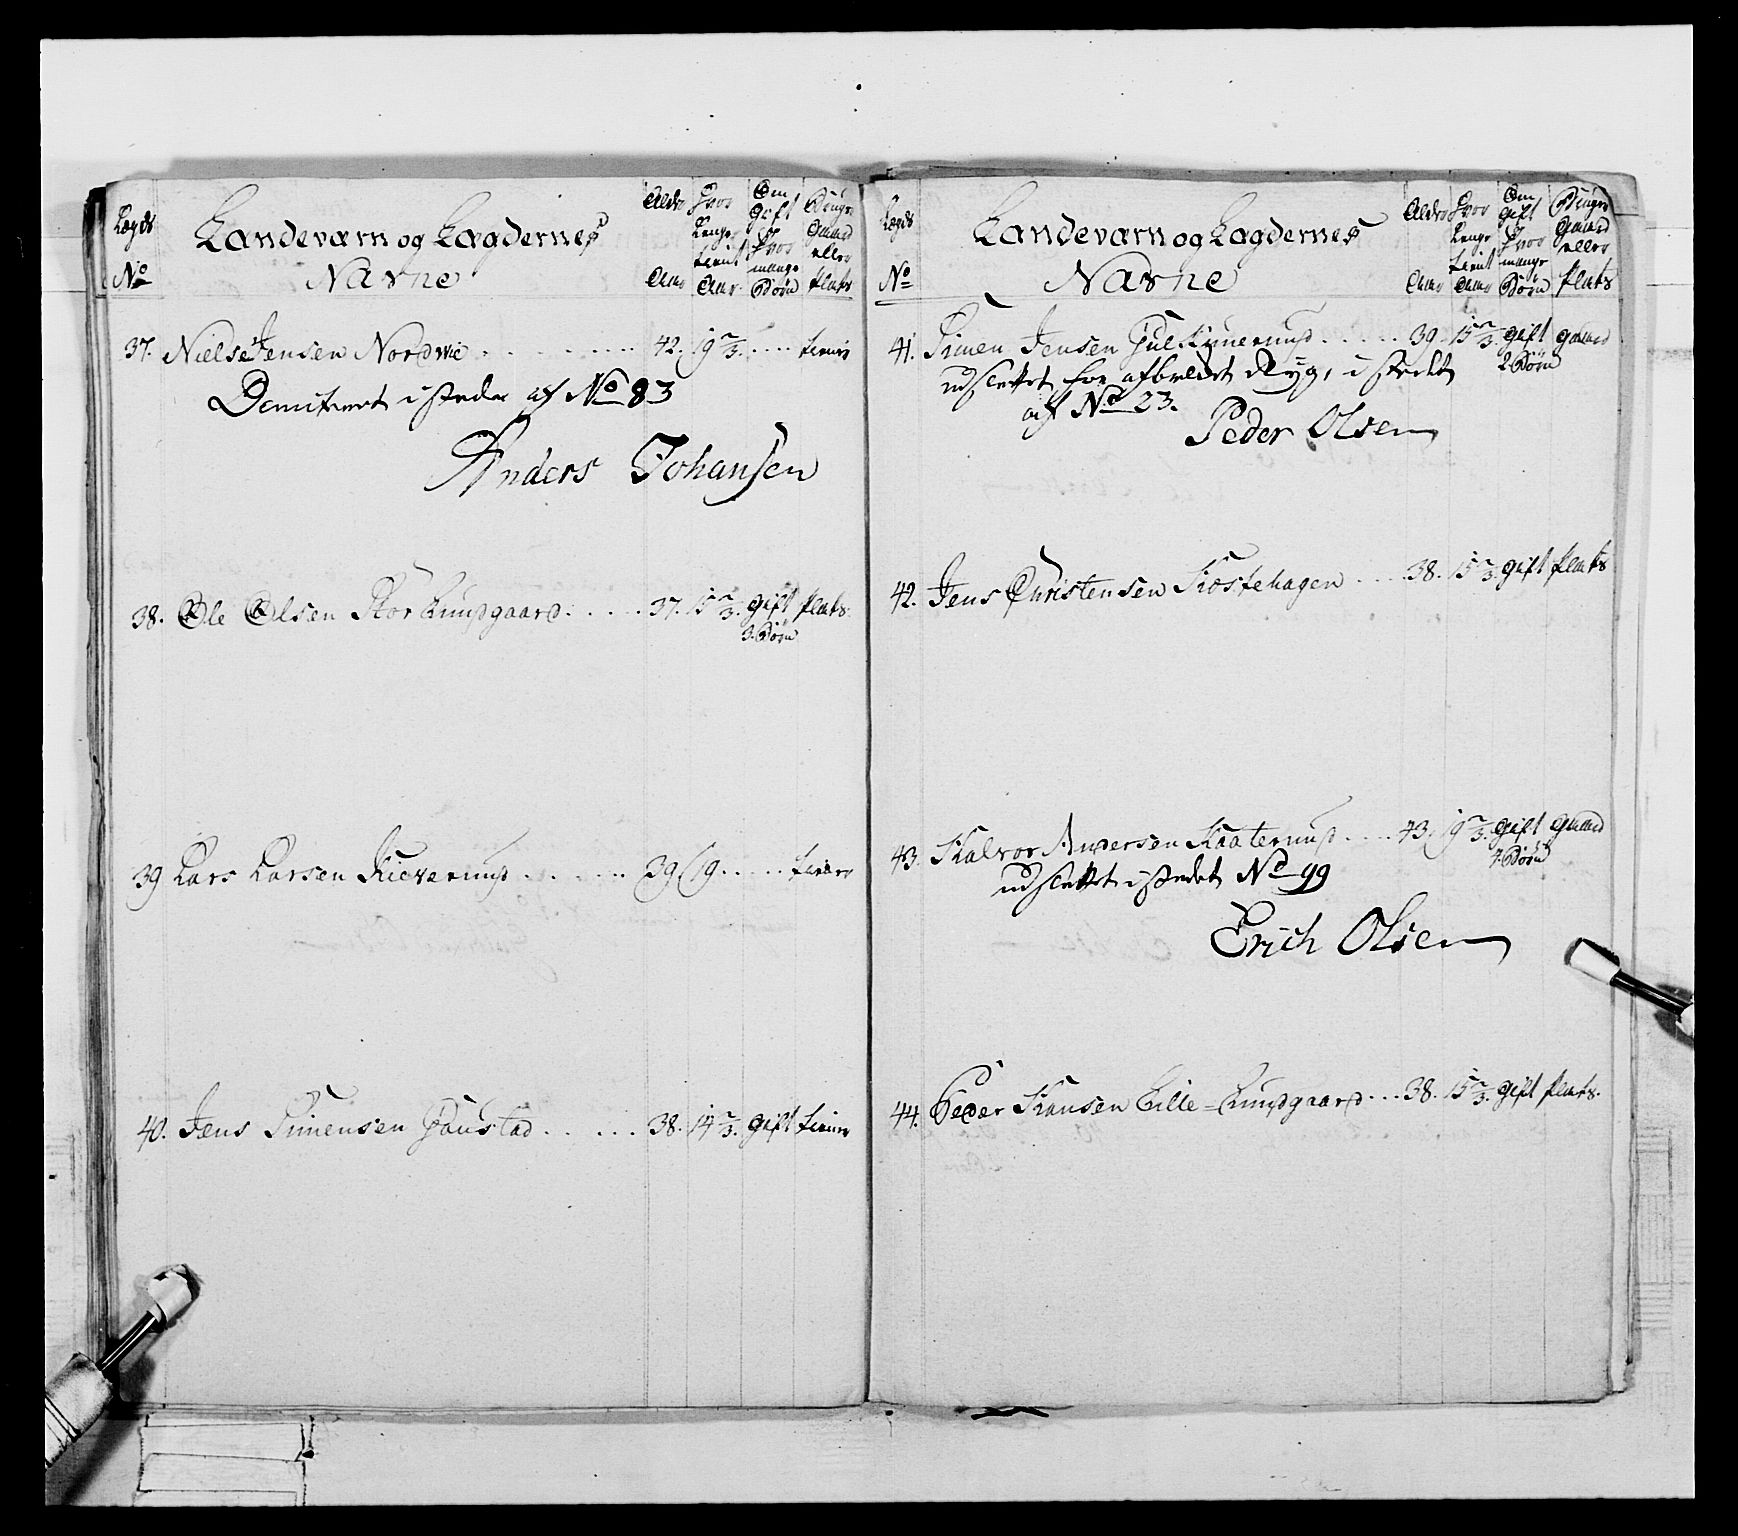 Lægds
No
Landeværn og Lægdernes
Navne
Alder
Aar
Hvor
Lenge
tient
Aar
Om
Gift
Hvor
mange
Børn
Bruger
Gaard
eller
Plads
37. Niels Jensen Nordvie . . . . . . . . 42. 19 2/3 . . . . . tiener
Demitteret i stæden af No 83
Anders Johansen
38. Ole Olsen Stor Kundgaard . . . . . 37. 15 2/3. gift Plads.
3. Børn
39 Lars Larsen . . . . . . 39 19 . . . . . tiener
40. Jens Simensen . . . . . 38. 14 2/3. gift tiener
Lægds
No
Landeværn og Lægdernes
Navne
Alder
Aar
Hvor
Lenge
tient
Aar
Om
Gift
Hvor
mange
Børn
Bruger
Gaard
eller
Plads
41. Simen Jensen . . . . . 39. 15 2/3. gift gaard
2 Børn
udslettet for afbrekket Ryg, i stedet
af No 23.
Peder Olsen
42. Jens Christensen Kostehagen . . . . 38. 15 2/3. gift Plads
43. Halvor Andersen Kaaterud . . . . . 43. 19 2/3. gift gaard
4. Børn
udslettet i stedet No 99
Erich Olsen
44. Peder Hansen Lille=Kundgaard . . . 38. 15 2/3. gift Plads.